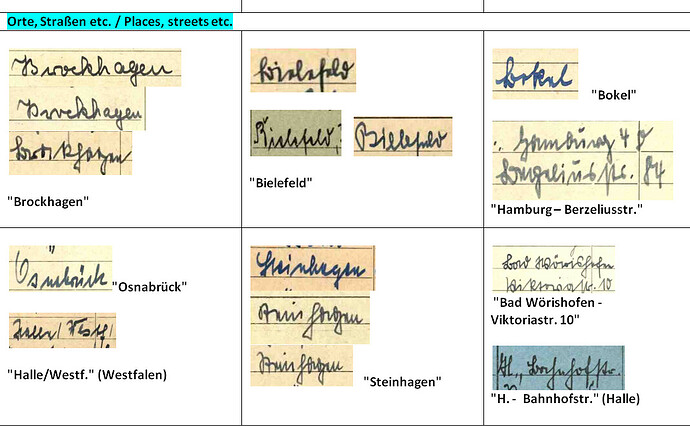 Orte, Straßen etc. / Places, streets etc.
Brockhagen
Brockhagen
Brockhagen
"Brockhagen"
Bielefeld
Bielefeld
Bielefeld
"Bielefeld"
Bokel
"Bokel"
Hamburg 48
Berzeliusstr. 84
"Hamburg – Berzeliusstr."
Osnabrück
"Osnabrück"
Halle/Westf/
"Halle/Westf." (Westfalen)
Steinhagen
Steinhagen
Steinhagen
"Steinhagen"
Bad Wörishofen
Viktoriastr. 10
"Bad Wörishofen -
Viktoriastr. 10"
H., Bahnhofstr.
"H. - Bahnhofstr." (Halle)